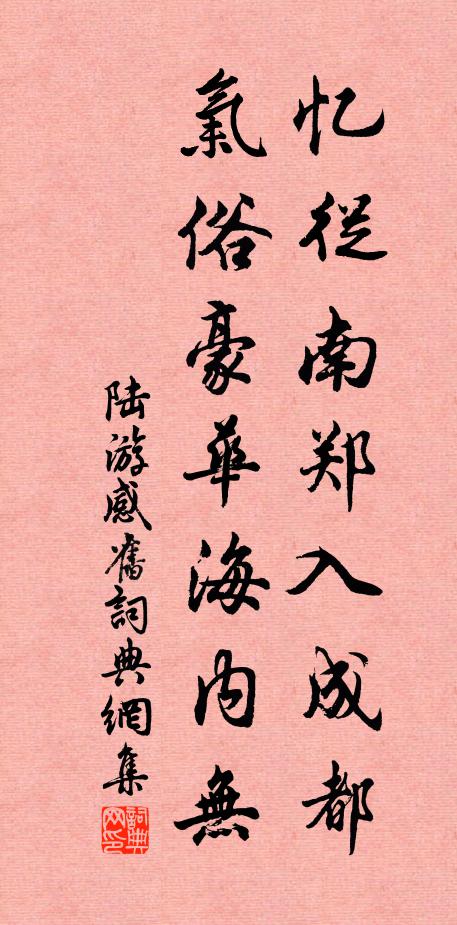 忆従南郑入成都
氣俗豪華海内無
陆游感舊詞典網集
詞典网印